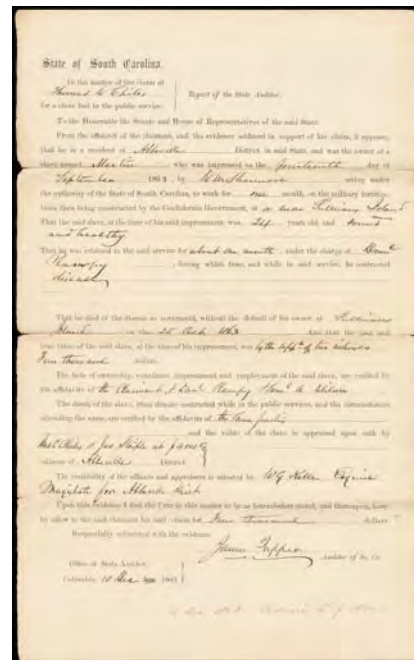 State of South Carolina.
In the matter of the claim of
Thomas W Chiles
for a slave lost in the public service.
Report of the State Auditor.
To the Honorable the Senate and House of Representatives of the said State:
From the affidavit of the claimant, and the evidence adduced in support of his claim, it appears,
that he is a resident of Abbeville District in said State, and was the owner of a
slave named Martin who was impressed on the fourteenth day of
September 1863 by acting under
the authority of the State of South Carolina, to work for one month, on the military fortifica-
tions then being constructed by the Confederate Government, at or near Sullivans Island
That the said slave, at the time of his said impressment, was years old, and sound
and healthy
That he was retained in the said service for about one month, under the charge of
Rampy, during which time, and while in said service, he contracted
disease
That he died of the disease so contracted, without the default of his owner at Sullivans
Island on the 25 Oct 1863 And that the just and
true value of the said slave, at the time of his impressment, was by the of two
thousand dollars.
The facts of ownership, condition, impressment and employment of the said slave, are verified by
the affidavits of the Claimant & Rampy A Wilson
The death of the slave, from disease contracted while in the public services, and the circumstances
attending the same, are verified by the affidavits of the Same parties
and the value of the slave is appraised upon oath by
& Jas at $
citizens of Abbeville District
The credibility of the affiants and appraisers is attested by W G Esquire
Magistrate for Abbeville Dist
Upon this evidence I find the facts in this matter to be as hereinbefore stated, and thereupon, here-
by allow to the said claimant his said claim for thousand dollars
Respectfully submitted with the evidence.
James Tupper
Auditor of So. Ca.
Office of State Auditor,
Columbia, 10 Dec 1863